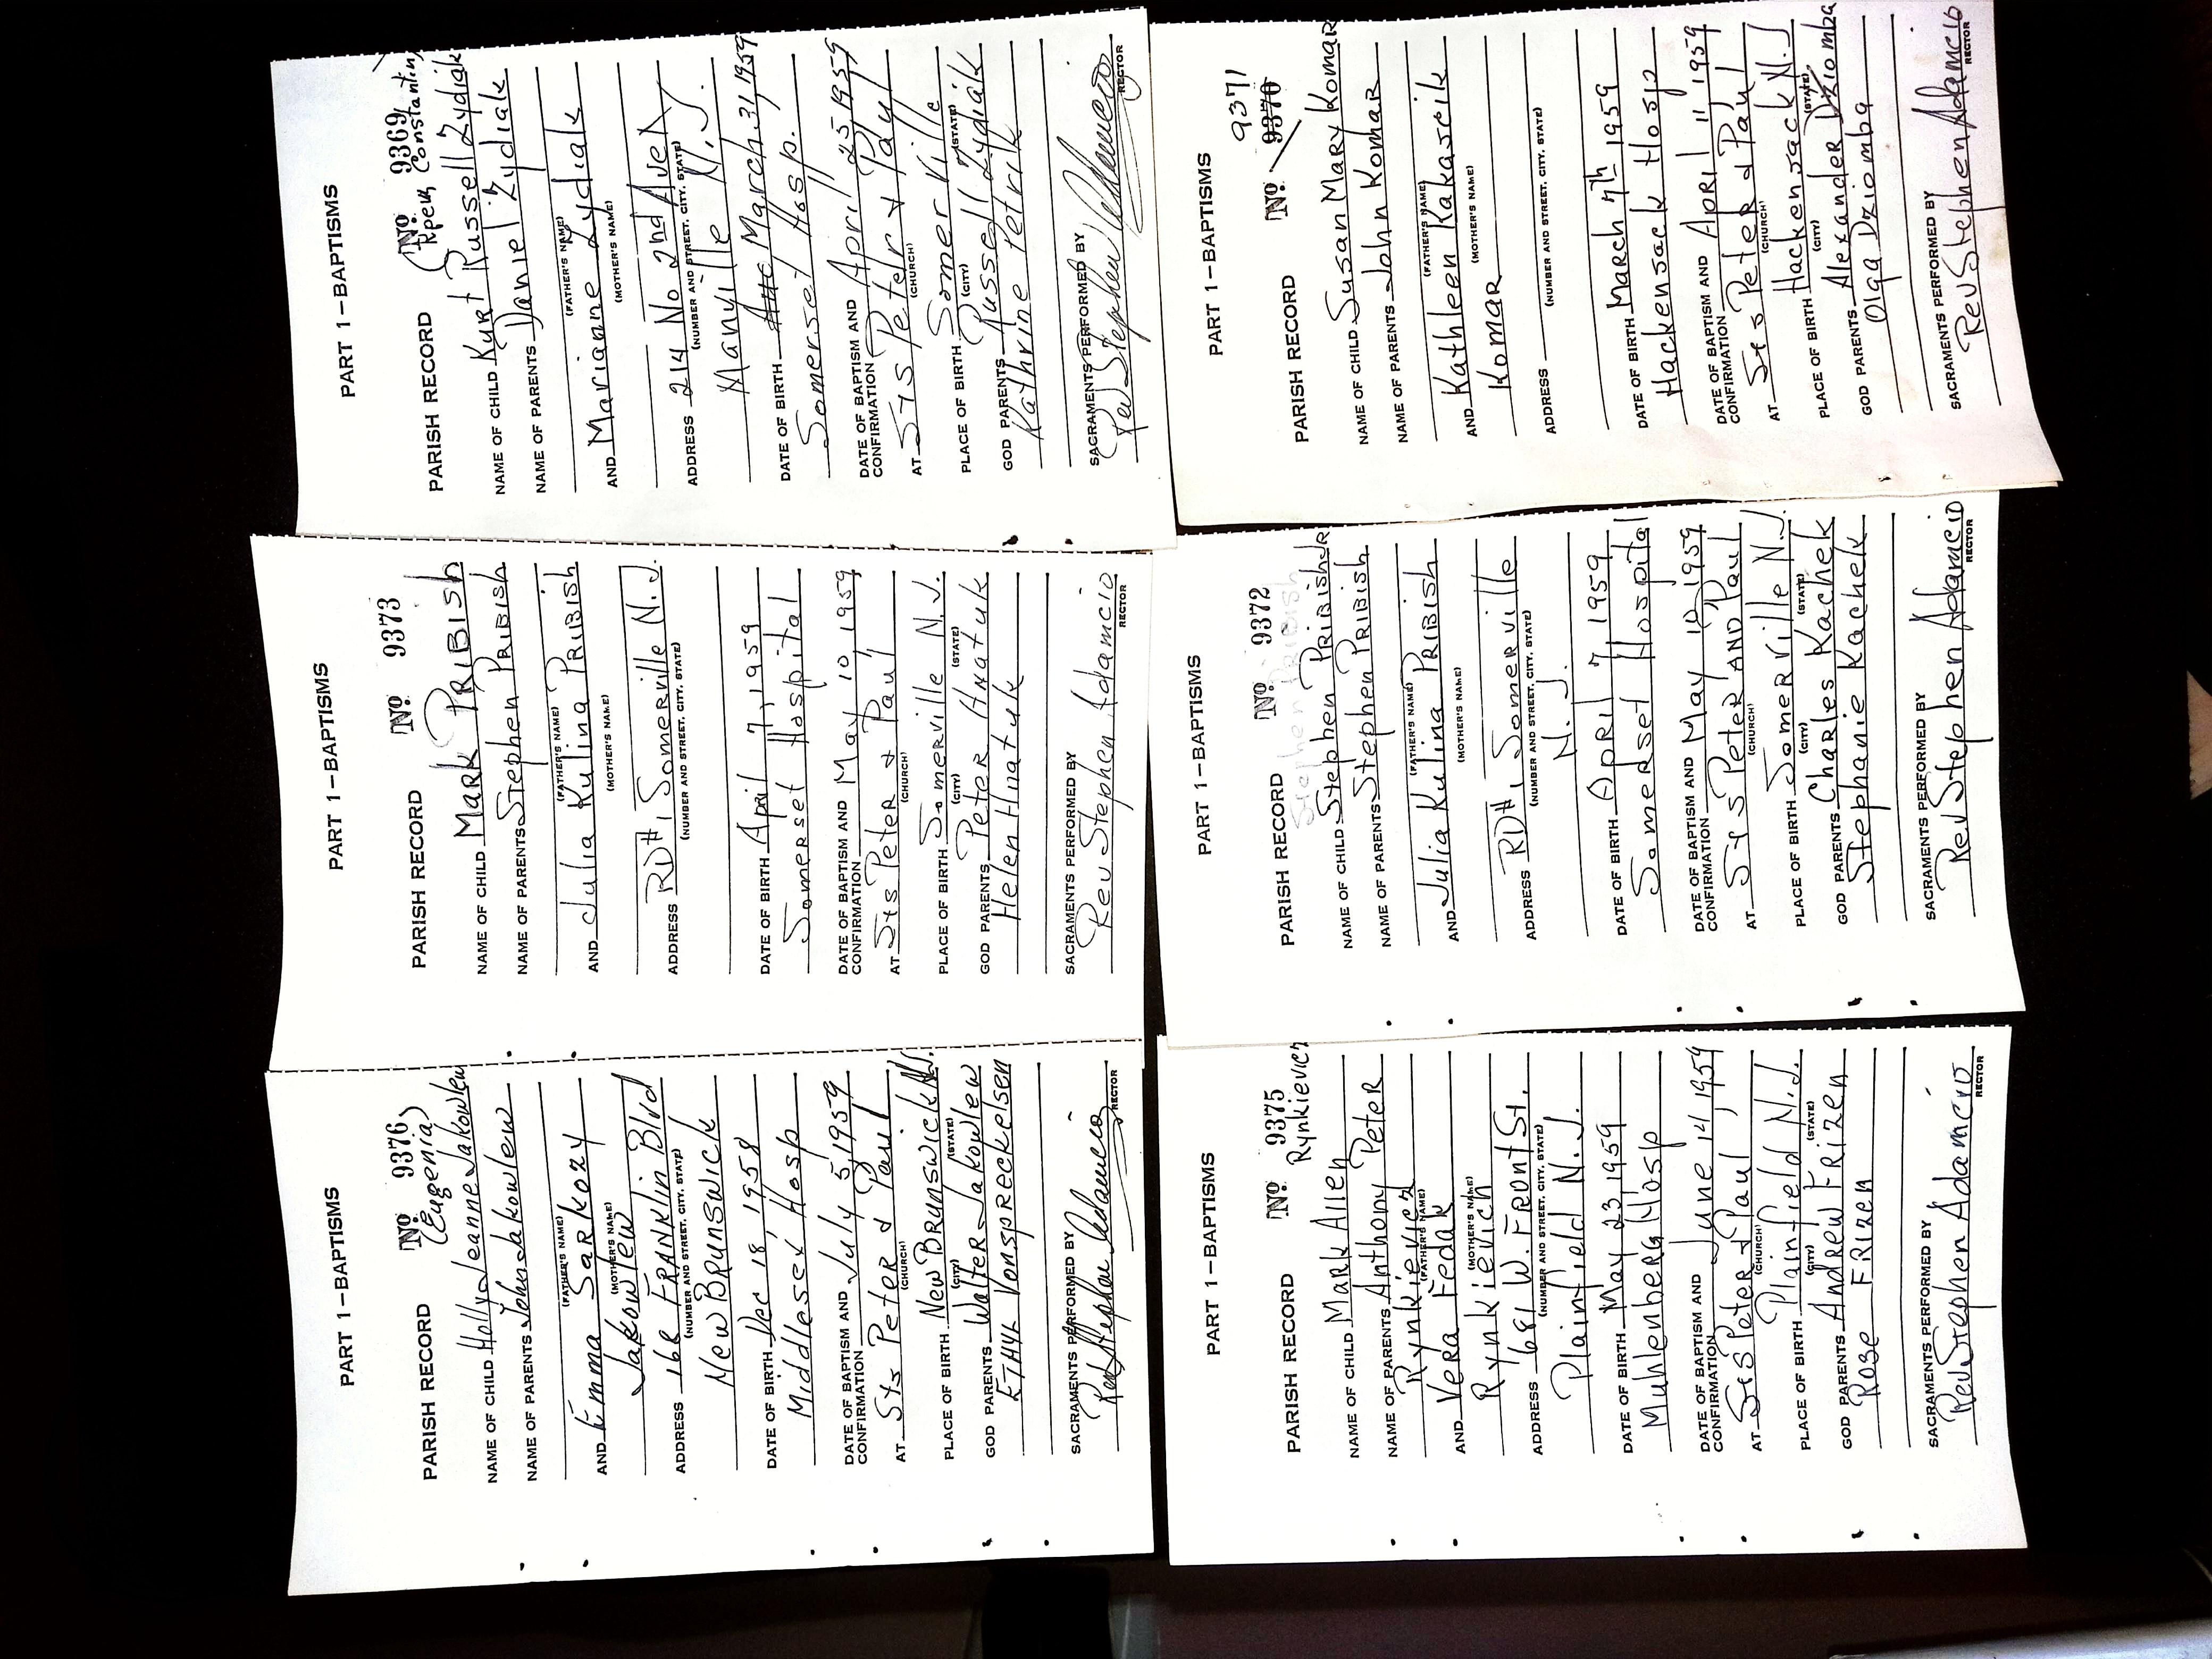 PART 1—BAPTISMS
PARISH RECORD No 9376
(Eugenia)
NAME OF CHILD Holly Jeanne Jakowlew
NAME OF PARENTS John Jakowlew
(FATHER'S NAME)
AND Emma Sarkozy
(MOTHER'S NAME)
Jakowlew
ADDRESS 168 Franklin Blvd
(NUMBER AND STREET, CITY, STATE)
New Brunswick
DATE OF BIRTH Dec 18, 1958
Middlesex Hosp
DATE OF BAPTISM AND
CONFIRMATION July 5, 1959
AT Sts Peter & Paul
(CHURCH)
PLACE OF BIRTH New Brunswick N.J.
(CITY) (STATE)
GOD PARENTS Walter Jakowlew
Ethyl Vonspreckelsen
SACRAMENTS PERFORMED BY
Rev Stephen Adamcio
RECTOR
PART 1—BAPTISMS
PARISH RECORD No 9373
NAME OF CHILD Mark Pribish
NAME OF PARENTS Stephen Pribish
(FATHER'S NAME)
AND Julia Kulina Pribish
(MOTHER'S NAME)
ADDRESS RD#1 Somerville N.J.
(NUMBER AND STREET, CITY, STATE)
DATE OF BIRTH April 7, 1959
Somerset Hospital
DATE OF BAPTISM AND
CONFIRMATION May 10, 1959
AT Sts Peter & Paul
(CHURCH)
PLACE OF BIRTH Somerville N.J.
(CITY) (STATE)
GOD PARENTS Peter Hnatuk
Helen Hnatuk
SACRAMENTS PERFORMED BY
Rev Stephen Adamcio
RECTOR
PART 1—BAPTISMS
PARISH RECORD No 9369
Constantin
NAME OF CHILD Kurt Russell Zydiak
NAME OF PARENTS Daniel Zydiak
(FATHER'S NAME)
AND Marianne Zydiak
(MOTHER'S NAME)
ADDRESS 214 No 2nd Ave
(NUMBER AND STREET, CITY, STATE)
Manville N.J.
DATE OF BIRTH March 31, 1959
Somerset Hosp.
DATE OF BAPTISM AND
CONFIRMATION April 25, 1959
AT Sts Peter & Paul
(CHURCH)
PLACE OF BIRTH Somerville
(CITY) (STATE)
GOD PARENTS Russell Zydiak
Kathrine Petrik
SACRAMENTS PERFORMED BY
Rev Stephen Adamcio
RECTOR
PART 1—BAPTISMS
PARISH RECORD No 9375
Rynkievicz
NAME OF CHILD Mark Allen
NAME OF PARENTS Anthony Peter
Rynkievicz
(FATHER'S NAME)
AND Vera Fedak
(MOTHER'S NAME)
Rynkievich
ADDRESS 681 W. Front St.
(NUMBER AND STREET, CITY, STATE)
Plainfield N.J.
DATE OF BIRTH May 23, 1959
Muhlenberg Hosp
DATE OF BAPTISM AND
CONFIRMATION June 14, 1959
AT Sts Peter & Paul
(CHURCH)
PLACE OF BIRTH Plainfield N.J.
(CITY) (STATE)
GOD PARENTS Andrew Frizen
Rose Frizen
SACRAMENTS PERFORMED BY
Rev Stephen Adamcio
RECTOR
PART 1—BAPTISMS
PARISH RECORD No 9372
Stephen Pribish
NAME OF CHILD Stephen Pribish Jr
NAME OF PARENTS Stephen Pribish
(FATHER'S NAME)
AND Julia Kulina Pribish
(MOTHER'S NAME)
ADDRESS RD#1 Somerville
(NUMBER AND STREET, CITY, STATE)
N.J.
DATE OF BIRTH April 7, 1959
Somerset Hospital
DATE OF BAPTISM AND
CONFIRMATION May 10, 1959
AT Sts Peter and Paul
(CHURCH)
PLACE OF BIRTH Somerville N.J.
(CITY) (STATE)
GOD PARENTS Charles Kachek
Stephanie Kachek
SACRAMENTS PERFORMED BY
Rev Stephen Adamcio
RECTOR
PART 1—BAPTISMS
9371
PARISH RECORD No 9370
NAME OF CHILD Susan Mary Komar
NAME OF PARENTS John Komar
(FATHER'S NAME)
AND Kathleen Kakascik
(MOTHER'S NAME)
Komar
ADDRESS
(NUMBER AND STREET, CITY, STATE)
DATE OF BIRTH March 7th 1959
Hackensack Hosp
DATE OF BAPTISM AND
CONFIRMATION April 11, 1959
AT Sts Peter & Paul
(CHURCH)
PLACE OF BIRTH Hackensack N.J
(CITY) (STATE)
GOD PARENTS Alexander Dziomba
Olga Dziomba
SACRAMENTS PERFORMED BY
Rev Stephen Adamcio
RECTOR